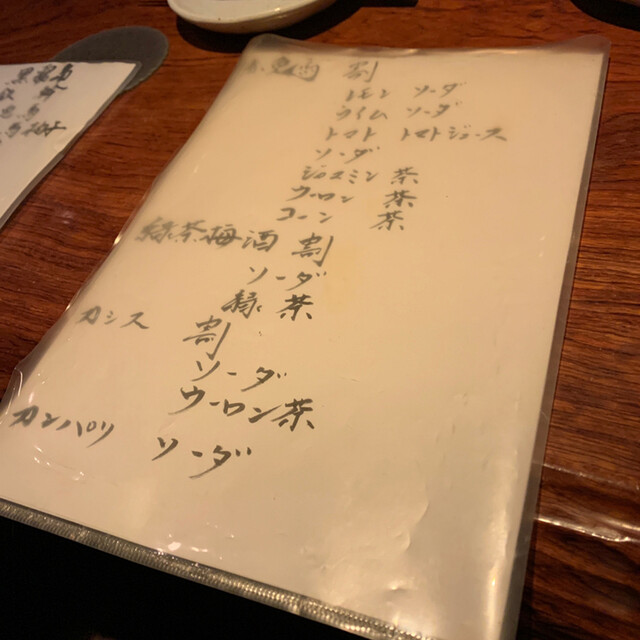 割
レモン ソーダ
ライム ソーダ
トマト トマトジュース
ソーダ
ジャスミン 茶
ウーロン 茶
コーン 茶
緑茶梅酒 割
ソーダ
緑茶
カシス 割
ソーダ
ウーロン茶
カンパリ ソーダ